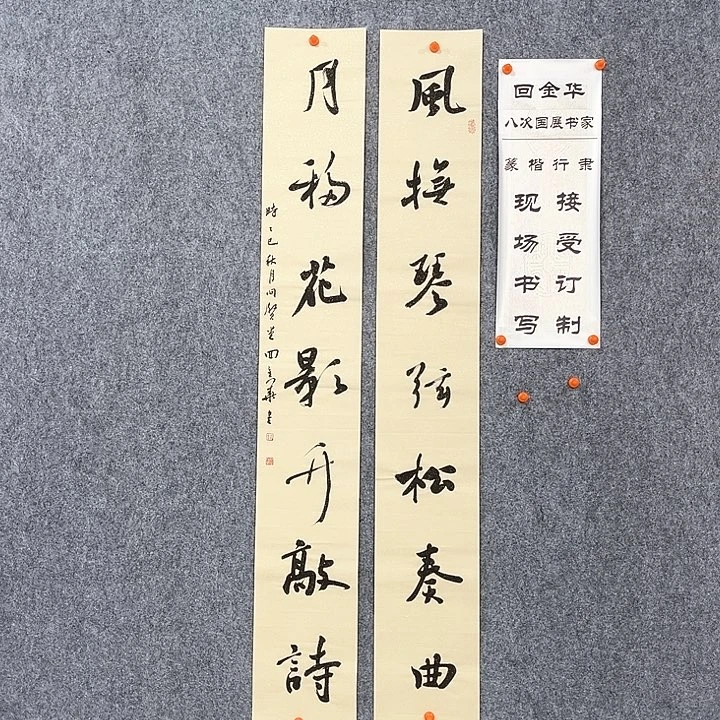 風撫琴弦松奏曲
月移花影竹敲詩
時乙巳秋月問賢堂回金華書
回金华
八次国展书家
篆楷行隶
现场书写
接受订制